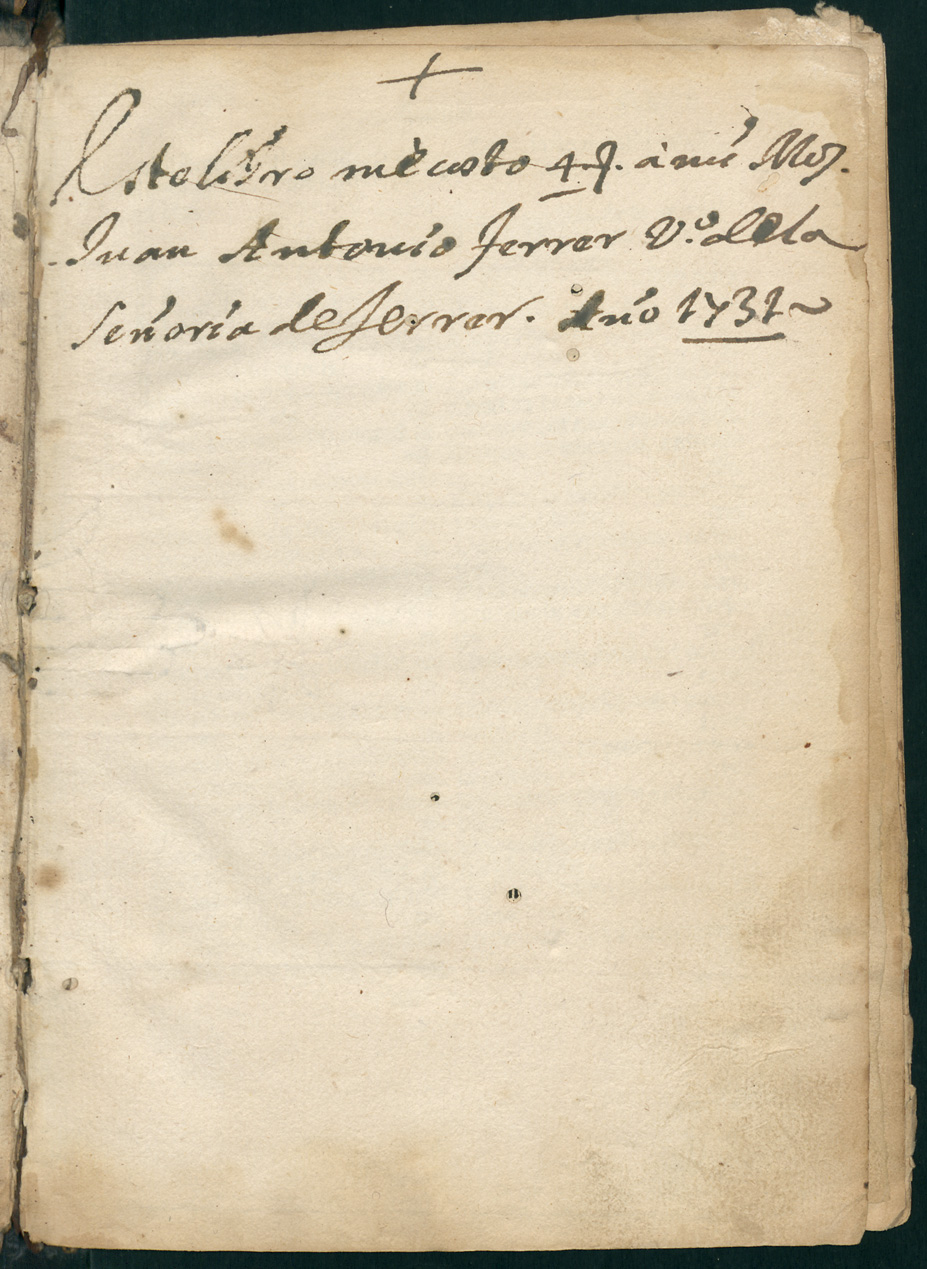 +
Este libro mè costo 4 à mi Mos.
Juan Antonio Ferrer V.º de la
Señoria de Ferrer. Año 1731